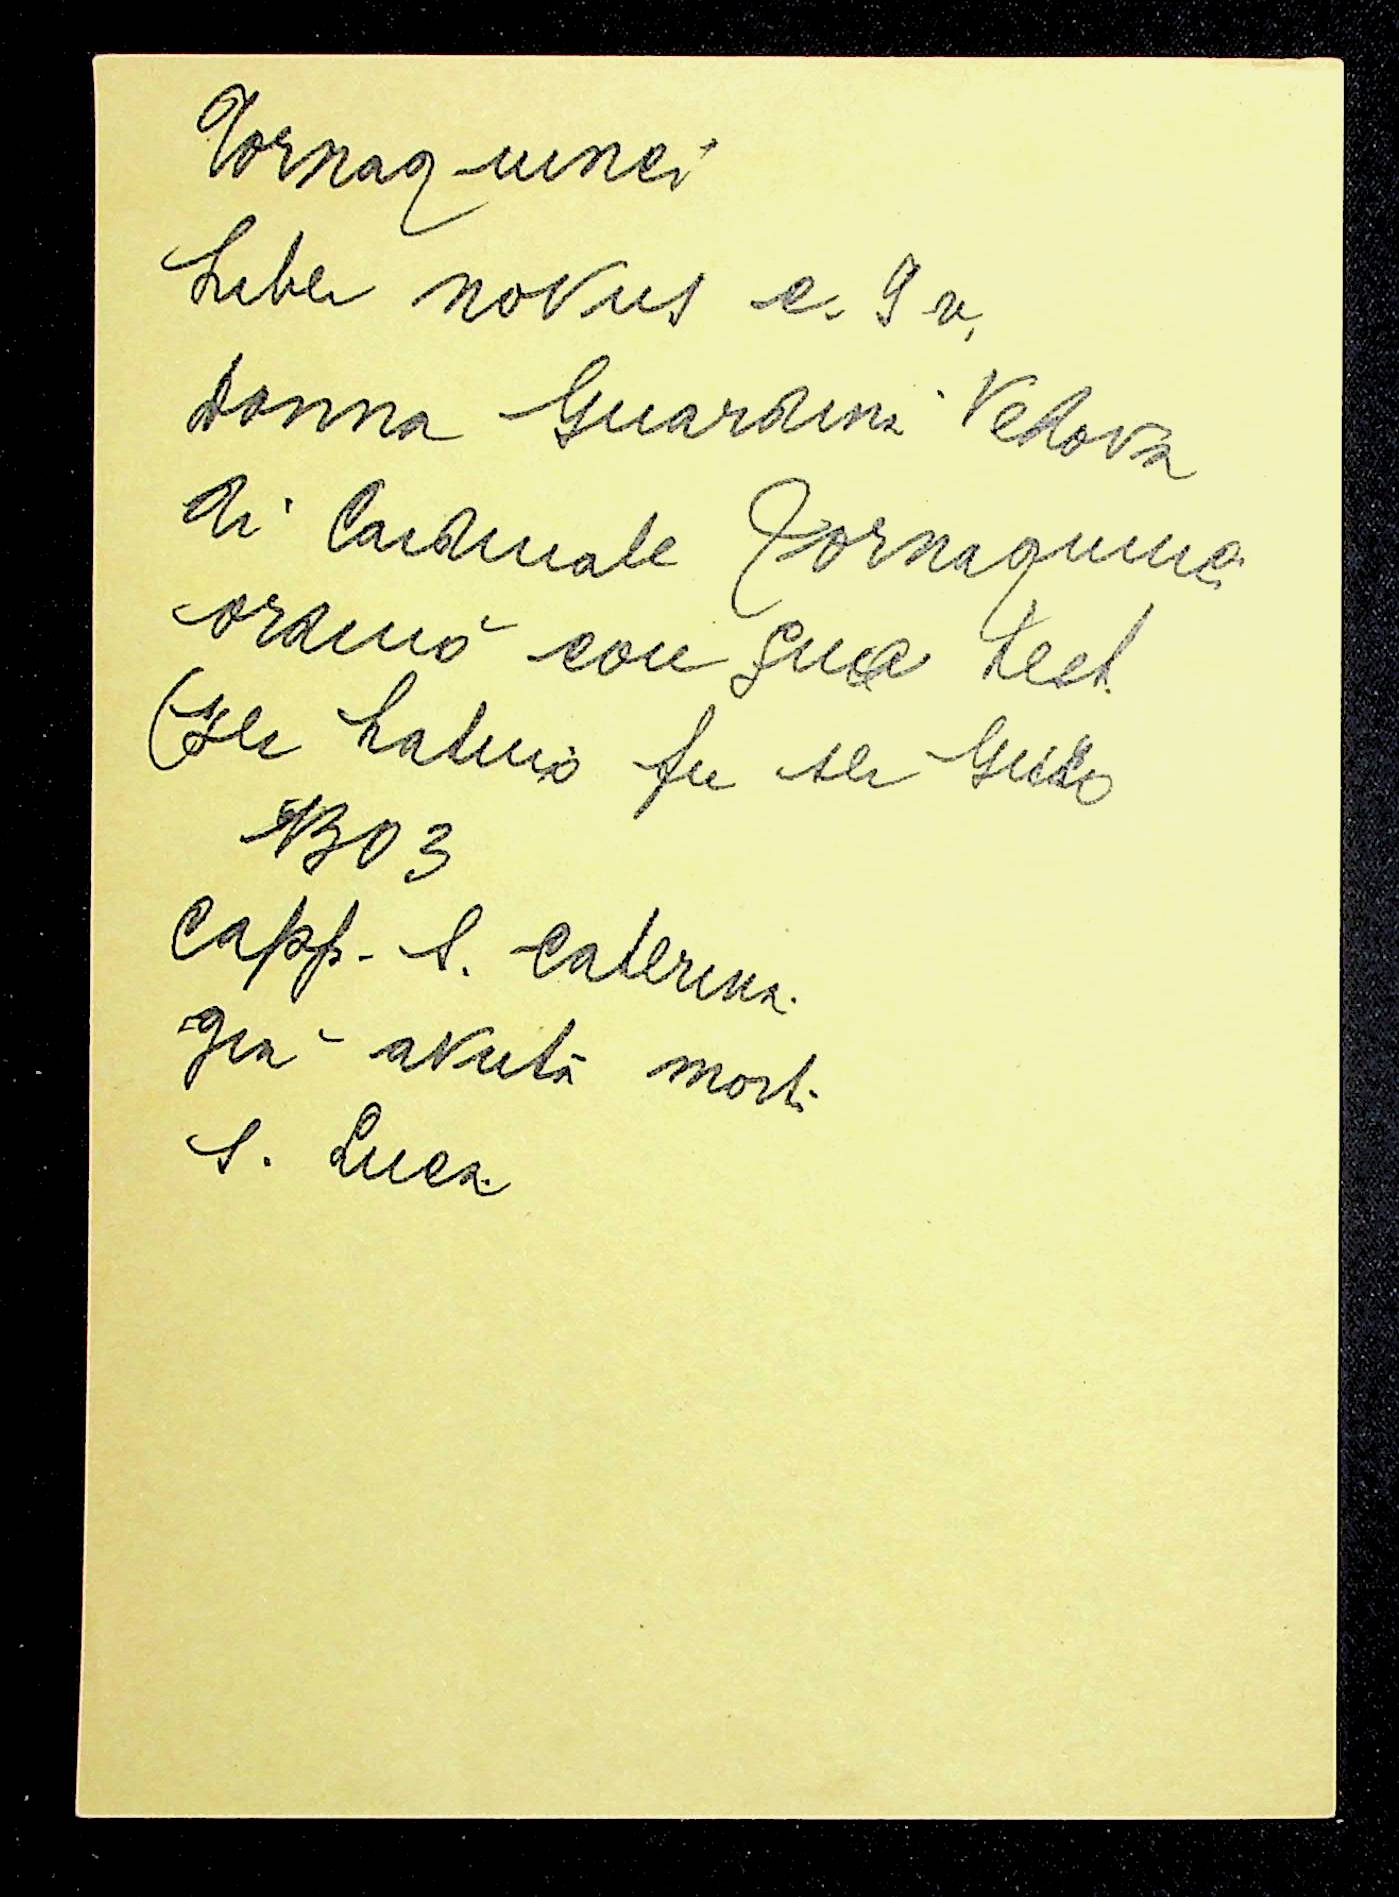 Tornaquinci
Liber novus c. 9 v.
Donna Guardina Vedova
di Cardinale Tornaquinci
ordinò con suo test.
(Ser Latino fu ser Guido
1303
Capp. S. Caterina
già avuta morti
S. Luca